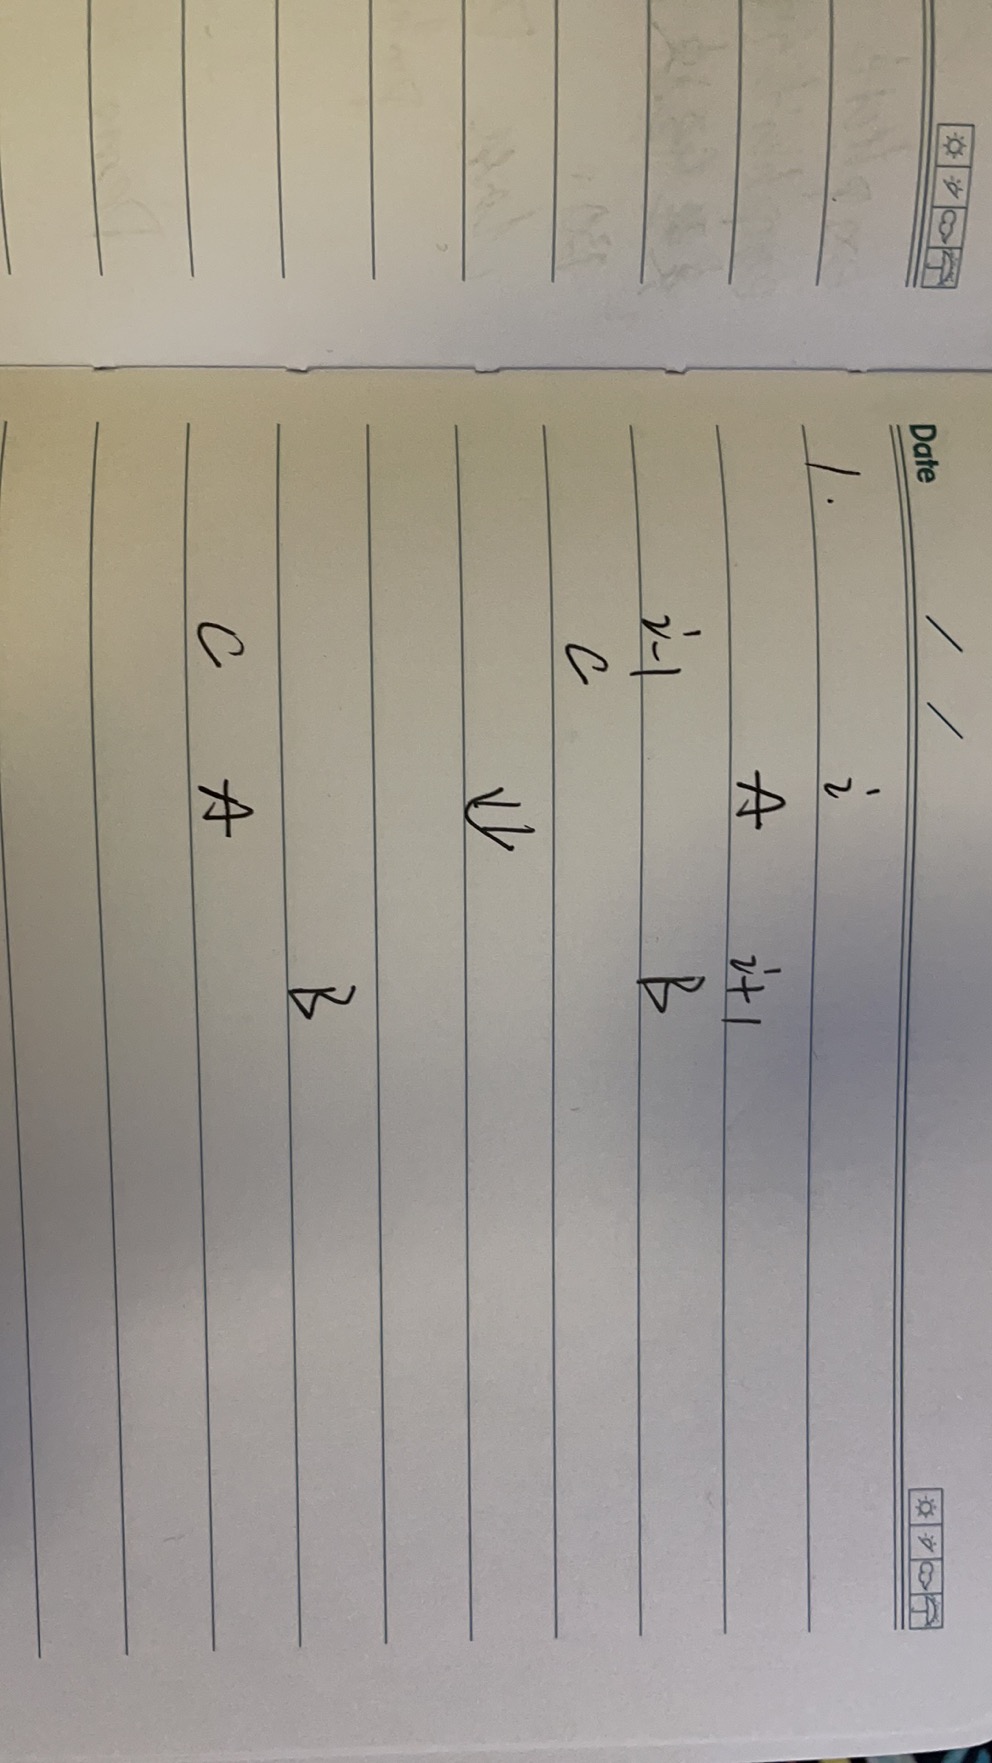 Date / /
1. i
A i+1
i-1 B
C
⇓
B
C A